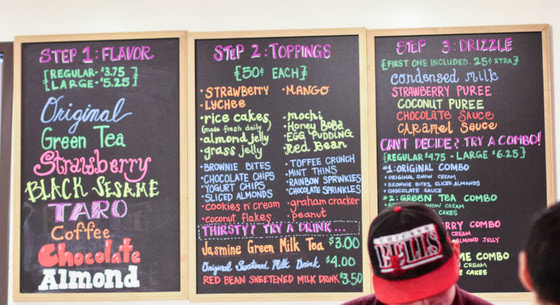 STEP 1: FLAVOR
{REGULAR - $3.75}
{LARGE - $5.25}
Original
Green Tea
Strawberry
BLACK SESAME
TARO
Coffee
Chocolate
Almond
STEP 2: TOPPINGS
{50¢ EACH}
• STRAWBERRY
• LYCHEE
• rice cakes
(made fresh daily)
• almond jelly
• grass jelly
• BROWNIE BITES
• CHOCOLATE CHIPS
• YOGURT CHIPS
• SLICED ALMONDS
• cookies n' cream
• coconut flakes
• MANGO
• mochi
• Honey Boba
• EGG PUDDING
• Red Bean
• TOFFEE CRUNCH
• MINT THINS
• RAINBOW SPRINKLES
• CHOCOLATE SPRINKLES
• graham cracker
• peanut
THIRSTY? TRY A DRINK...
Jasmine Green Milk Tea $3.00
Original Sweetened Milk Drink $4.00
RED BEAN SWEETENED MILK DRINK $3.50
STEP 3: DRIZZLE
{FIRST ONE INCLUDED. 25¢ XTRA}
condensed milk
STRAWBERRY PUREE
COCONUT PUREE
CHOCOLATE SAUCE
CARAMEL SAUCE
CAN'T DECIDE? TRY A COMBO!
{REGULAR $4.75 - LARGE $6.25}
#1: ORIGINAL COMBO
• ORIGINAL SNOW CREAM
• BROWNIE BITES, SLICED ALMONDS
• CHOCOLATE SAUCE
#2: GREEN TEA COMBO
SNOW CREAM
CAKES
COMBO
CREAM
ALMOND JELLY
COMBO
CREAM
CAKES
BULLS